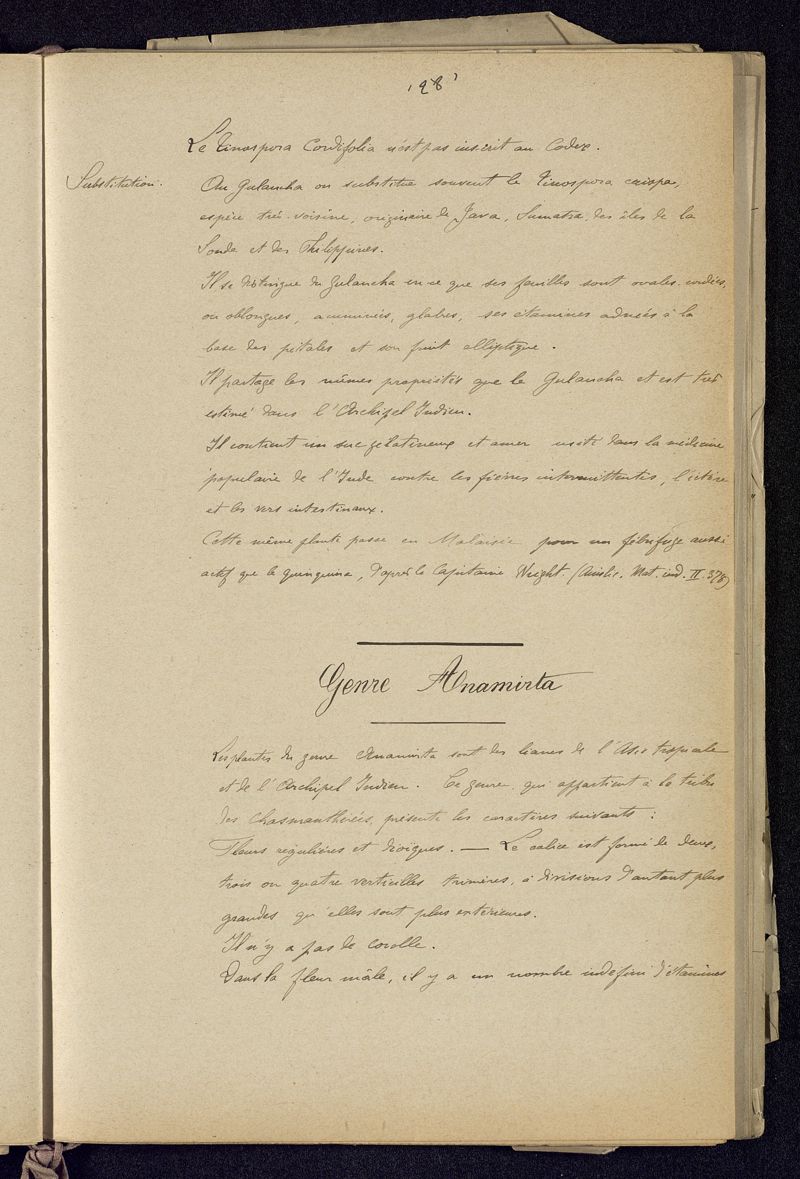 128
Le Tinospora Cordifolia n'est pas inscrit au Codex.
Substitution.
Au Gulancha on substitue souvent le Tinospora crispa,
espèce très-voisine, originaire de Java, Sumatra, des îles de la
Sonde et des Philippines.
Il se distingue du Gulancha en ce que ses feuilles sont ovales-cordées,
ou oblongues, acuminées, glabres, ses étamines adnées à la
base des pétales et son fruit elliptique.
Il partage les mêmes propriétés que le Gulancha et est très
estimé dans l'Archipel Indien.
Il contient un suc gélatineux et amer usité dans la médecine
populaire de l'Inde contre les fièvres intermittentes, l'ictère
et les vers intestinaux.
Cette même plante passe en Malaisie pour un fébrifuge aussi
actif que le quinquina, d'après le Capitaine Wright. (Ainslie. Mat. ind. II. 378)
Genre Anamirta
Les plantes du genre Anamirta sont des lianes de l'Asie tropicale
et de l'Archipel Indien. Ce genre qui appartient à la tribu
des Chasmanthérées, présente les caractères suivants :
Fleurs régulières et dioïques. — Le calice est formé de deux,
trois ou quatre verticilles trimères, à divisions d'autant plus
grandes qu'elles sont plus extérieures.
Il n'y a pas de corolle.
Dans la fleur mâle, il y a un nombre indéfini d'étamines